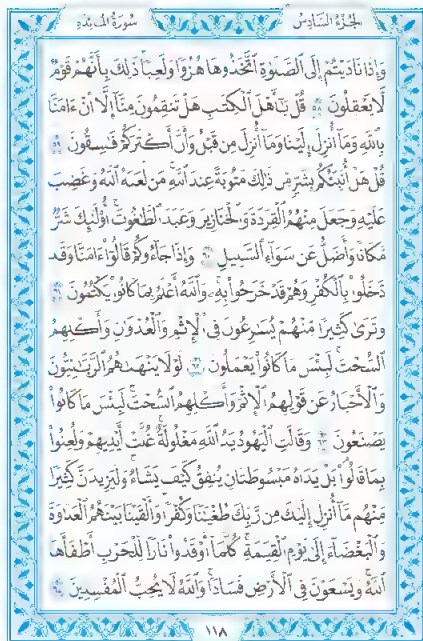 الجزء السادس سورة المائدة
وَإِذَا نَادَيْتُمْ إِلَى ٱلصَّلَوٰةِ ٱتَّخَذُوهَا هُزُوًا وَلَعِبًا ذَٰلِكَ بِأَنَّهُمْ قَوْمٌ
لَّا يَعْقِلُونَ ٥٨ قُلْ يَٰٓأَهْلَ ٱلْكِتَٰبِ هَلْ تَنقِمُونَ مِنَّآ إِلَّآ أَنْ ءَامَنَّا
بِٱللَّهِ وَمَآ أُنزِلَ إِلَيْنَا وَمَآ أُنزِلَ مِن قَبْلُ وَأَنَّ أَكْثَرَكُمْ فَٰسِقُونَ ٥٩
قُلْ هَلْ أُنَبِّئُكُم بِشَرٍّ مِّن ذَٰلِكَ مَثُوبَةً عِندَ ٱللَّهِ مَن لَّعَنَهُ ٱللَّهُ وَغَضِبَ
عَلَيْهِ وَجَعَلَ مِنْهُمُ ٱلْقِرَدَةَ وَٱلْخَنَازِيرَ وَعَبَدَ ٱلطَّٰغُوتَ أُو۟لَٰٓئِكَ شَرٌّ
مَّكَانًا وَأَضَلُّ عَن سَوَآءِ ٱلسَّبِيلِ ٦٠ وَإِذَا جَآءُوكُمْ قَالُوٓا۟ ءَامَنَّا وَقَد
دَّخَلُوا۟ بِٱلْكُفْرِ وَهُمْ قَدْ خَرَجُوا۟ بِهِۦ وَٱللَّهُ أَعْلَمُ بِمَا كَانُوا۟ يَكْتُمُونَ ٦١
وَتَرَىٰ كَثِيرًا مِّنْهُمْ يُسَٰرِعُونَ فِى ٱلْإِثْمِ وَٱلْعُدْوَٰنِ وَأَكْلِهِمُ
ٱلسُّحْتَ لَبِئْسَ مَا كَانُوا۟ يَعْمَلُونَ ٦٢ لَوْلَا يَنْهَىٰهُمُ ٱلرَّبَّٰنِيُّونَ
وَٱلْأَحْبَارُ عَن قَوْلِهِمُ ٱلْإِثْمَ وَأَكْلِهِمُ ٱلسُّحْتَ لَبِئْسَ مَا كَانُوا۟
يَصْنَعُونَ ٦٣ وَقَالَتِ ٱلْيَهُودُ يَدُ ٱللَّهِ مَغْلُولَةٌ غُلَّتْ أَيْدِيهِمْ وَلُعِنُوا۟
بِمَا قَالُوا۟ بَلْ يَدَاهُ مَبْسُوطَتَانِ يُنفِقُ كَيْفَ يَشَآءُ وَلَيَزِيدَنَّ كَثِيرًا
مِّنْهُم مَّآ أُنزِلَ إِلَيْكَ مِن رَّبِّكَ طُغْيَٰنًا وَكُفْرًا وَأَلْقَيْنَا بَيْنَهُمُ ٱلْعَدَٰوَةَ
وَٱلْبَغْضَآءَ إِلَىٰ يَوْمِ ٱلْقِيَٰمَةِ كُلَّمَآ أَوْقَدُوا۟ نَارًا لِّلْحَرْبِ أَطْفَأَهَا
ٱللَّهُ وَيَسْعَوْنَ فِى ٱلْأَرْضِ فَسَادًا وَٱللَّهُ لَا يُحِبُّ ٱلْمُفْسِدِينَ ٦٤
١١٨